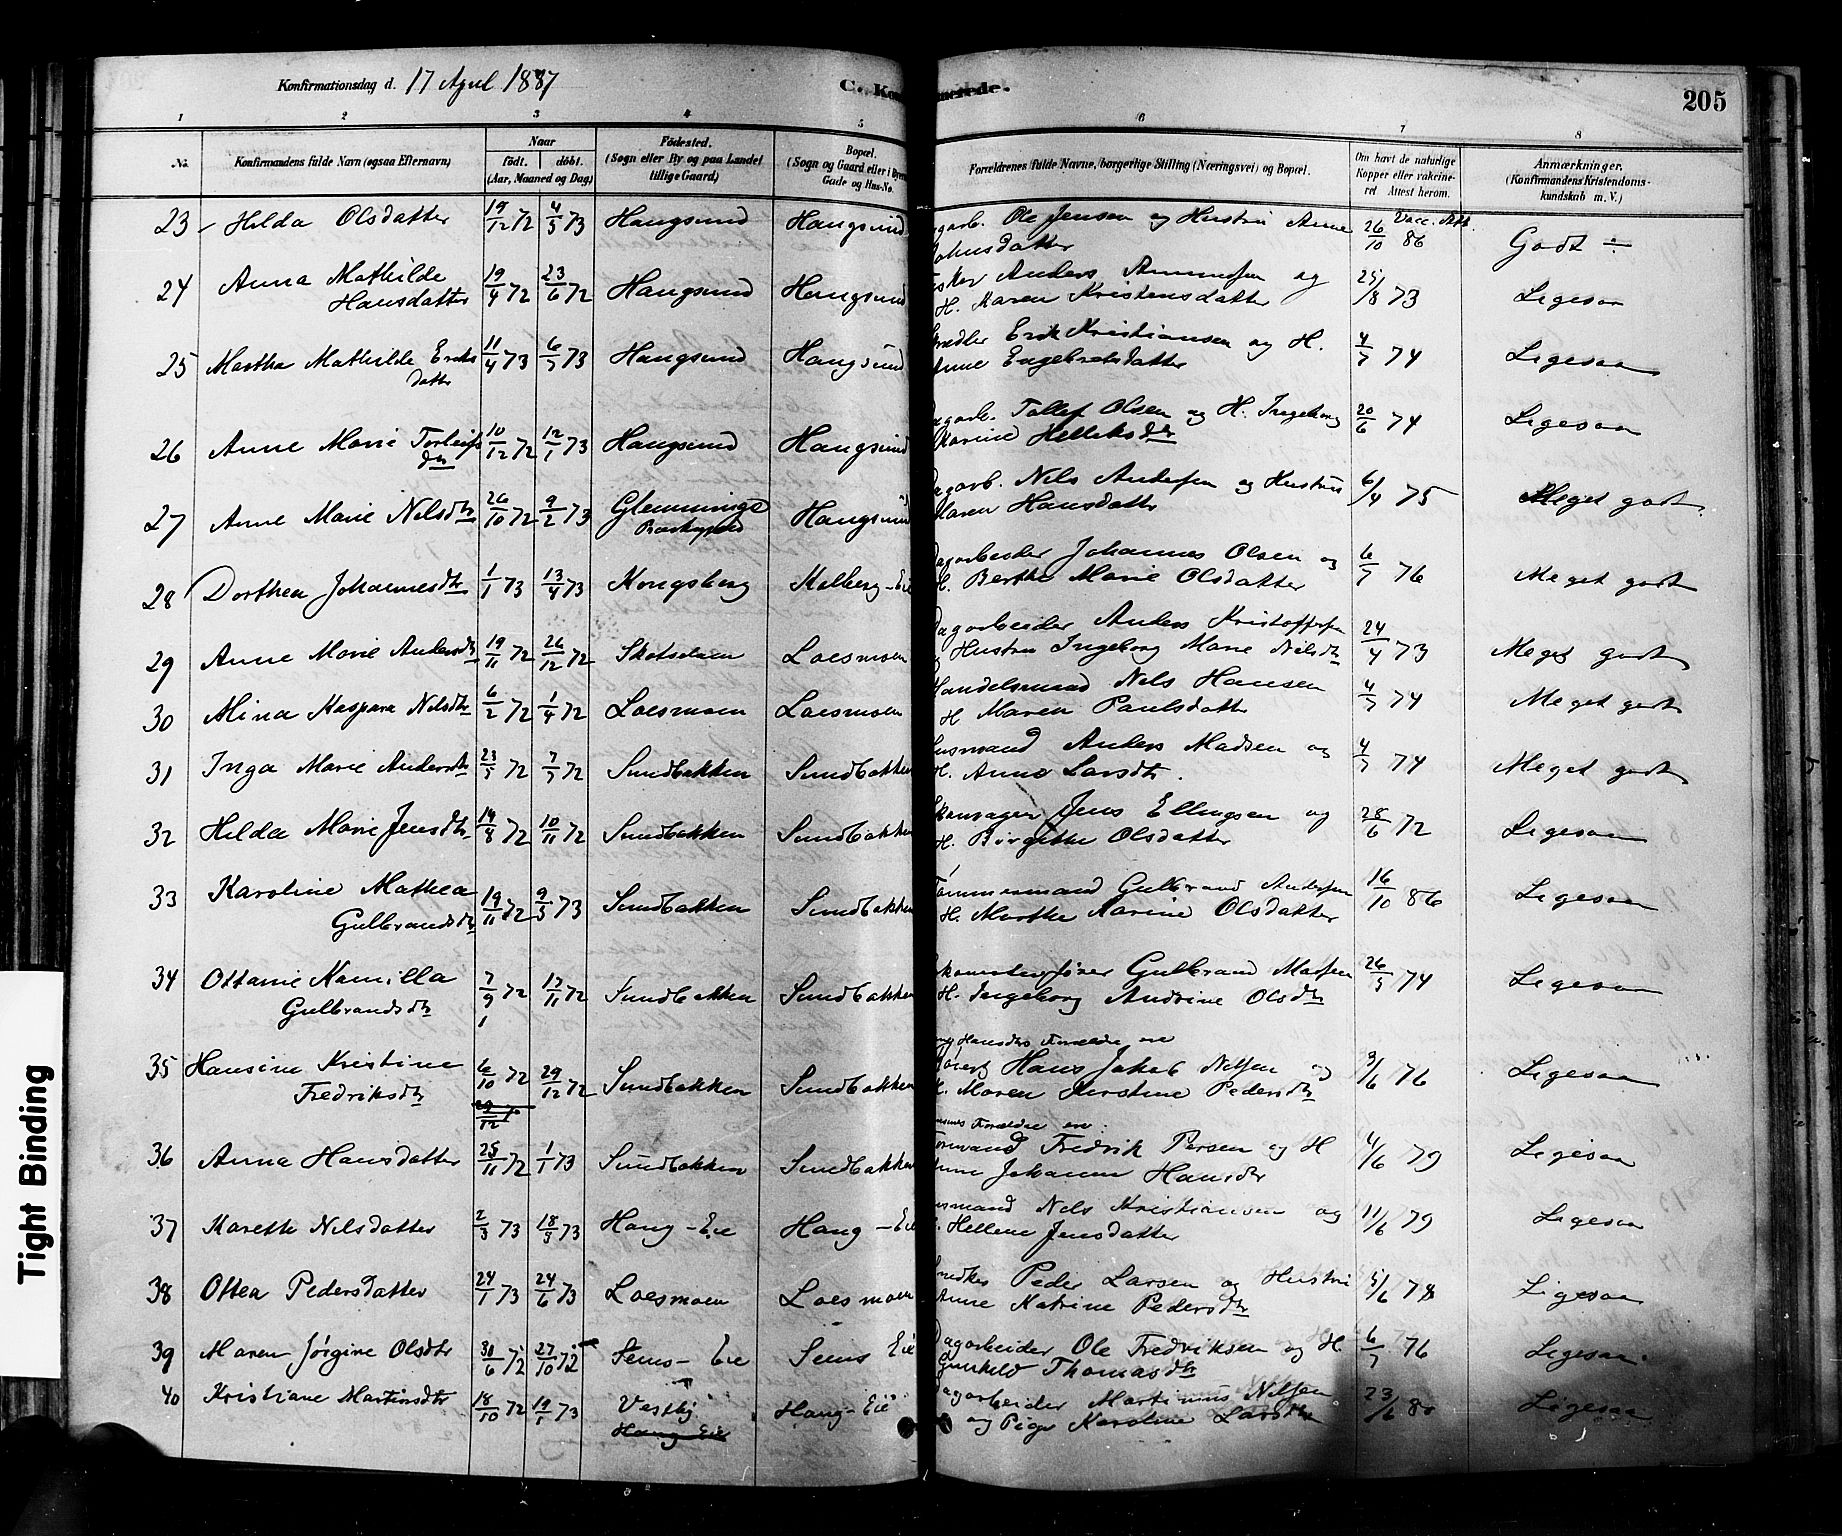 Konfirmationsdag d. 17 April 1887
205
1 2 3 4 5 6 7 8
No. Konfirmandens fulde Navn (ogsaa Efternavn) Naar födt. döbt. (Aar, Maaned og Dag) Födested. (Sogn eller By og paa Landet tillige Gaard) Bopæl. (Sogn og Gaard eller i Byen Gade og Hus-No. Forældrenes fulde Navne, borgerlige Stilling (Næringsvei) og Bopæl. Om havt de naturlige Kopper eller vakcineret Attest herom. Anmærkninger. (Konfirmandens Kristendomskundskab m. V.)
23 Hilda Olsdatter 19/12 72 4/5 73 Haugsund Haugsund Ole Jensen og Hustru Anne 26/10 86 Vacc. Att. Godt
24 Anna Mathilde 19/4 72 23/6 72 Haugsund Haugsund Anders og 25/8 73 Ligesaa
Hansdatter H. Maren Kristensdatter
25 Martha Mathilde Eriks 11/4 73 6/7 73 Haugsund Haugsund Erik Kristiansen og H. 4/7 74 Ligesaa
datter Anne Engebretsdatter
26 Anne Marie Torleifs 10/12 72 12/1 73 Haugsund Haugsund Tollef Olsen og H. Ingeborg 20/6 74 Ligesaa
dtr Karine Helleksdtr
27 Anne Marie Nilsdtr 26/10 72 9/2 73 Glemminge Haugsund Nils Andersen og Hustru 6/4 75 Meget godt
Maren Hansdatter
28 Dorthea Johannesdtr 1/1 73 13/4 73 Kongsberg Kolberg-Eie Dagarbeider Johannes Olsen og 6/7 76 Meget godt
H. Berthe Marie Olsdatter
29 Anne Marie Andersdtr 19/11 72 26/12 72 Skotselven Loesmoen Dagarbeider Anders Kristoffersen 24/4 73 Meget godt
Hustru Ingeborg Marie Nilsdtr
30 Mina Kaspara Nilsdtr 6/2 72 1/4 72 Loesmoen Loesmoen Handelsmand Nils Hansen 4/7 74 Meget godt
H. Maren Paulsdatter
31 Inga Marie Andersdtr 23/5 72 7/7 72 Sundbakken Sundbakken Husmand Anders Madsen og 4/7 74 Meget godt
H. Anne Larsdtr.
32 Hilda Marie Jensdtr 14/8 72 10/11 72 Sundbakken Sundbakken Jens Ellingsen og 28/6 72 Ligesaa
H. Birgitte Olsdatter
33 Karoline Mathea 19/11 72 9/3 73 Sundbakken Sundbakken Tømmermand Gulbrand Andersen 16/10 86 Ligesaa
Gulbrandsdtr H. Marthe Karine Olsdatter
34 Ottanie Kamilla 7/9 72 17/11 72 Sundbakken Sundbakken Gulbrand Madsen 26/5 74 Ligesaa
Gulbrandsdtr H. Ingeborg Andrine Olsdtr
Hansdtrs Forældre ere
35 Hansine Kristine 6/10 72 29/12 72 Sundbakken Sundbakken Hans Jakob Nilsen og 9/6 76 Ligesaa
Fredriksdtr H. Maren Kirstine Pedersdtr
Forældre ere:
36 Anna Hansdatter 25/11 72 1/1 73 Sundbakken Sundbakken Fredrik Persen og H 4/6 79 Ligesaa
Johanne Hansdtr
37 Karethe Nilsdatter 2/3 73 18/5 73 Haug-Eie Haug-Eie Husmand Nils Kristiansen og 11/6 79 Ligesaa
Hellene Jensdatter
38 Ottea Pedersdatter 24/1 73 24/6 73 Loesmoen Loesmoen Snedker Peder Larsen og Hustru 5/6 78 Ligesaa
Anne Katrine Pedersdtr
39 Maren Jörgine Olsdtr 30/6 72 27/10 72 Sems-Eie Sems Eie Dagarbeider Ole Fredriksen og H 6/7 76 Ligesaa
Gunhild Thomasdtr
40 Kristiane Martinsdtr 18/10 72 19/1 73 Vestby Haug-Eie Dagarbeider Martinus Nilsen 23/6 80 Ligesaa
Haug Eie og Pige Karoline Larsdtr
Tight Binding